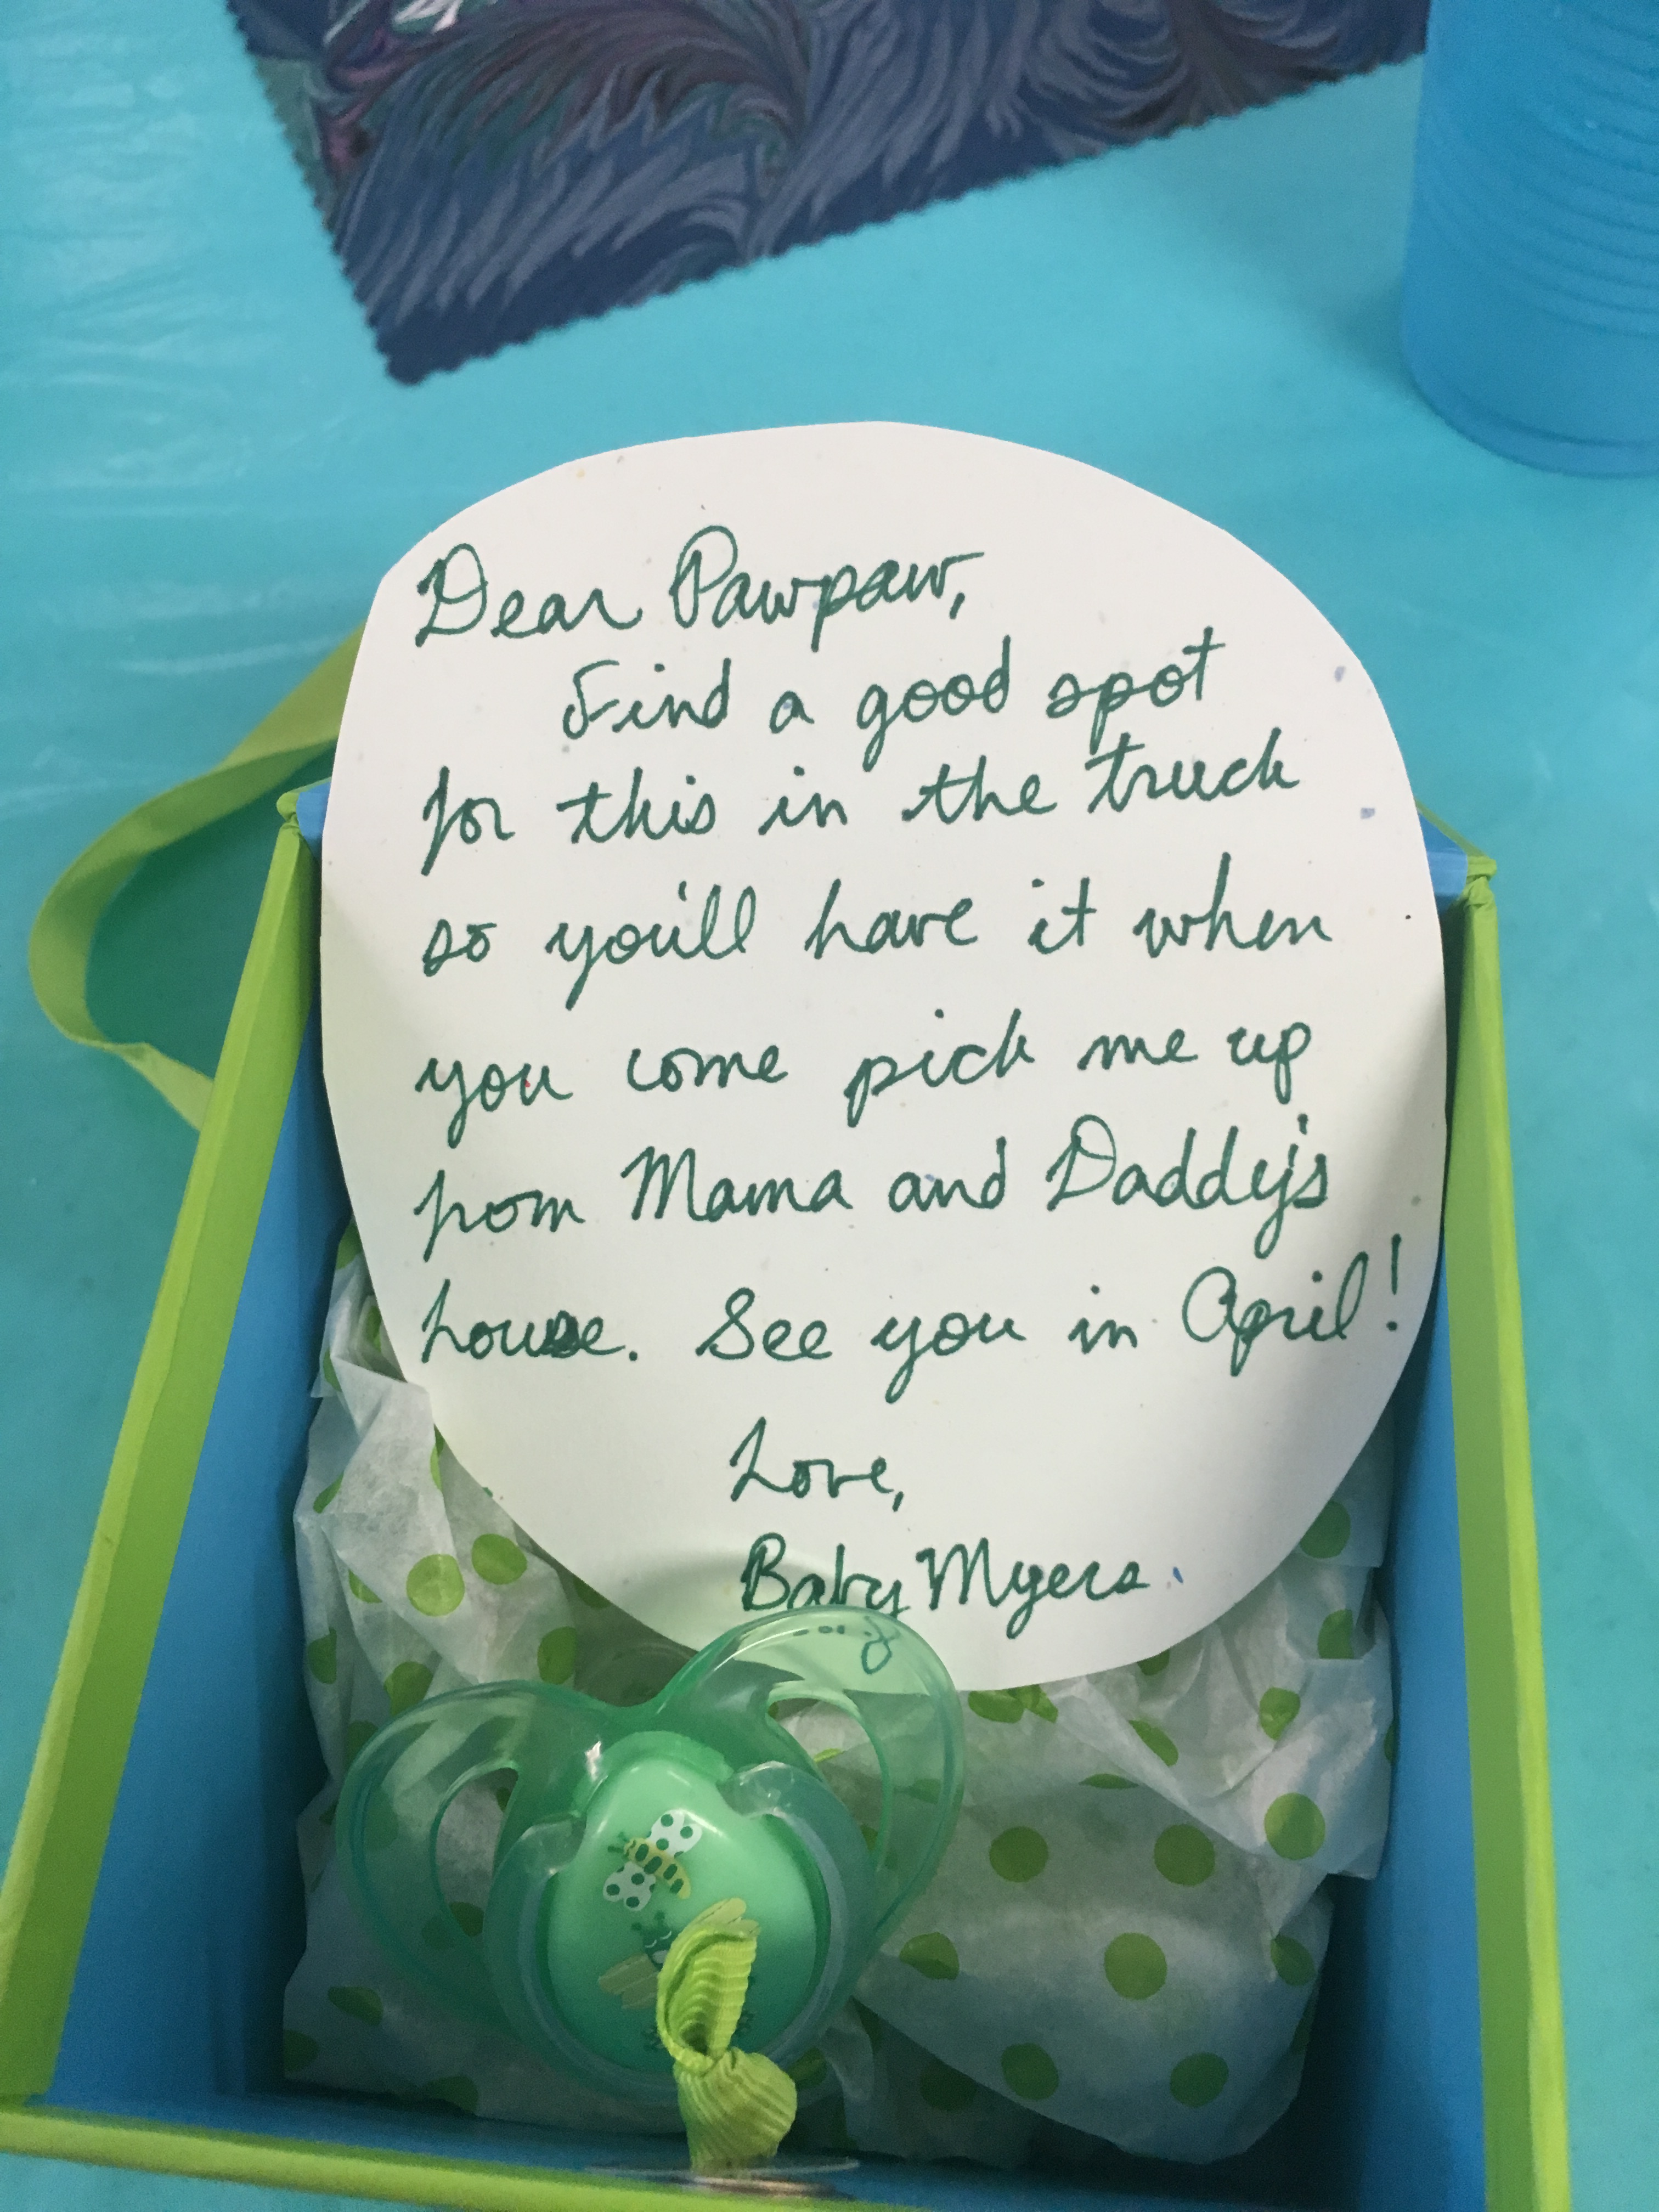 Dear Pawpaw,
Find a good spot
for this in the truck
so you'll have it when
you come pick me up
from Mama and Daddy's
house. See you in April!
Love,
Baby Myers